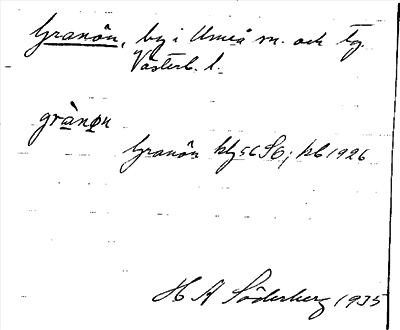 Granön, by i Umeå sn. och tg.
Västerb. l.
grànøn
Granön kbg 56 SO; kb 1926
H A Söderberg 1935